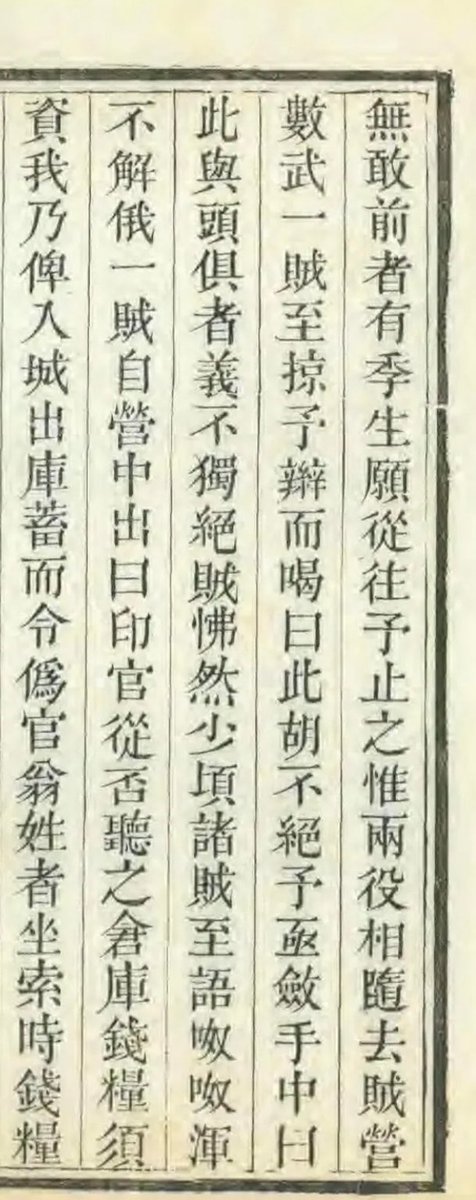 無敢前者有季生願從往予止之惟兩役相隨去賊營
數武一賊至掠予辮而喝曰此胡不絕予亟斂手中曰
此與頭俱者義不獨絕賊怫然少頃諸賊至語呶呶渾
不解俄一賊自營中出曰印官從否聽之倉庫錢糧須
資我乃俾入城出庫蓄而令偽官翁姓者坐索時錢糧